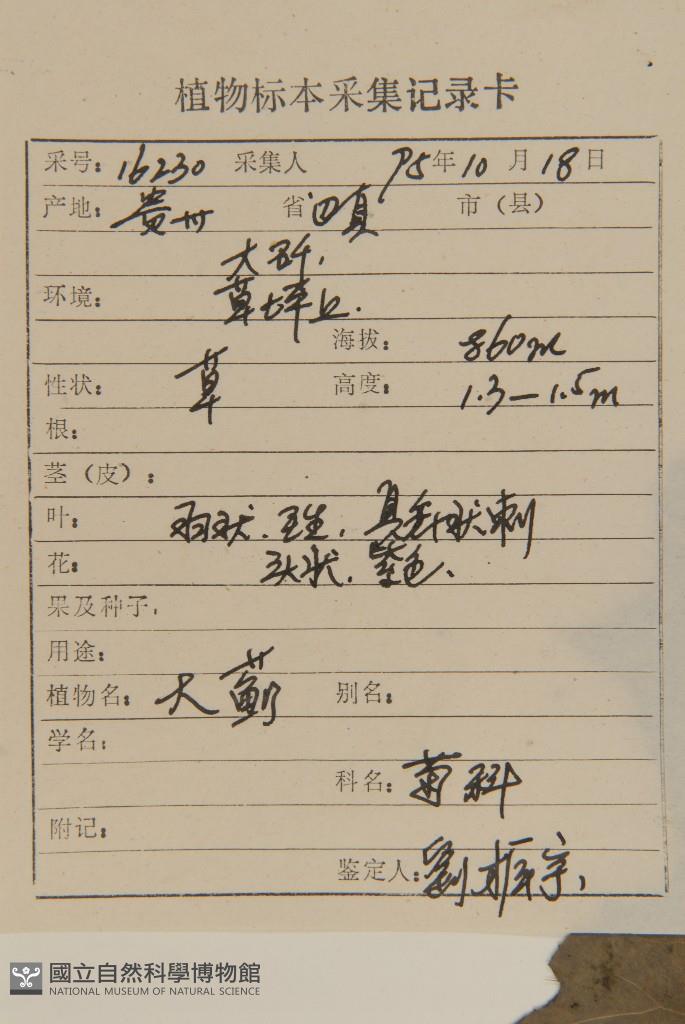 植物标本采集记录卡
采号: 16230 采集人 95年10月18日
产地: 贵州 省 市(县)
大
环境: 草坪上.
海拔: 860m
性状: 草 高度: 1.3—1.5m
根:
茎(皮):
叶: 羽状. 互生, 具针状刺
花: 头状. 紫色.
果及种子,
用途:
植物名: 大蓟 别名:
学名:
科名: 菊科
附记:
鉴定人: 劉振宇
國立自然科學博物館
NATIONAL MUSEUM OF NATURAL SCIENCE